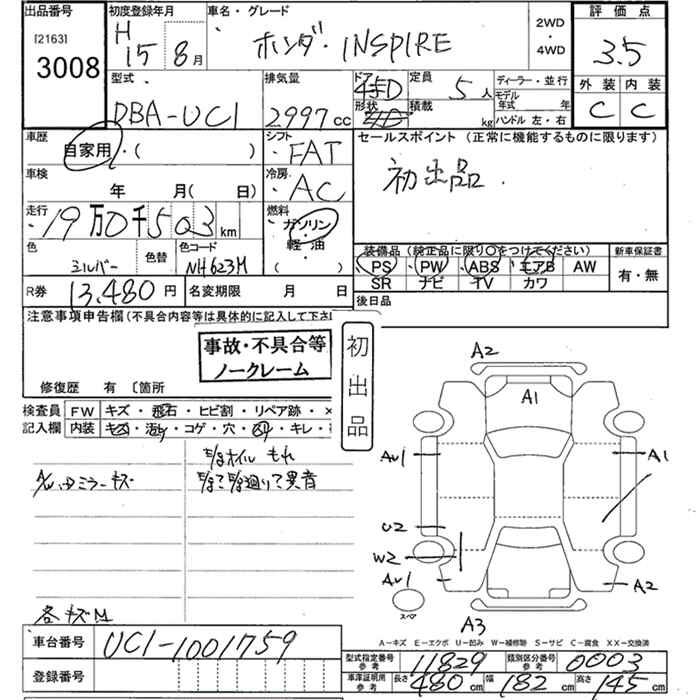 出品番号
[2163]
3008
初度登録年月
H 15 8月
車名・グレード
ホンダ・INSPIRE
2WD
・
4WD
評価点
3.5
外装 内装
C C
型式
DBA-UC1
排気量
2997cc
ドア
4ドD
形状
定員
5人
積載
kg
ディーラー・並行
モデル年式 年
ハンドル 左・右
車歴
自家用・( )
シフト
・FAT
セールスポイント(正常に機能するものに限ります)
初出品.
車検
年 月( 日)
冷房
・AC
走行
19万0千503km
燃料
ガソリン
・
軽・油
( )
色
シルバー
色替
色コード
NH623M
装備品(純正品に限り○をつけてください)
PS PW ABS エアB AW
SR ナビ TV カワ
新車保証書
有・無
R券 13,480円
名変期限 月 日
後日品
注意事項申告欄(不具合内容等は具体的に記入して下さ
事故・不具合等
ノークレーム
初出品
修復歴 有 〔箇所
検査員
記入欄
FW キズ・飛石・ヒビ割・リペア跡・×
内装 キズ・汚レ・コゲ・穴・スリ・キレ・
E/gオイルもれ
A/Wハロミラーキズ
各キズM
A2
A1
A1
U2
W2
A2
A3
スペア
A-キズ E-エクボ U-凹み W-補修跡 S-サビ C-腐食 XX-交換済
車台番号 UC1-1001759
登録番号
型式指定番号参考 11829
類別区分番号参考 0003
車庫証明用参考 長さ 480cm 幅 182cm 高さ 145cm